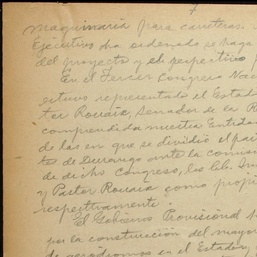 maquinaria para carreteras.
Ejecutivo ha ordenado se haga
del proyecto y el
En el Tercer Congreso Nac
estuvo representado el Estado
tor Rouaix, Senador de la R
comprendida nuestra Entidad
de las en que se dividió el paí
to de Durango ante la
de dicho Congreso, los CC.
y Pastor Rouaix como propi
respectivamente.
El Gobierno Provisional
por la construcción del mayor
de aeródromos en el Estado, y